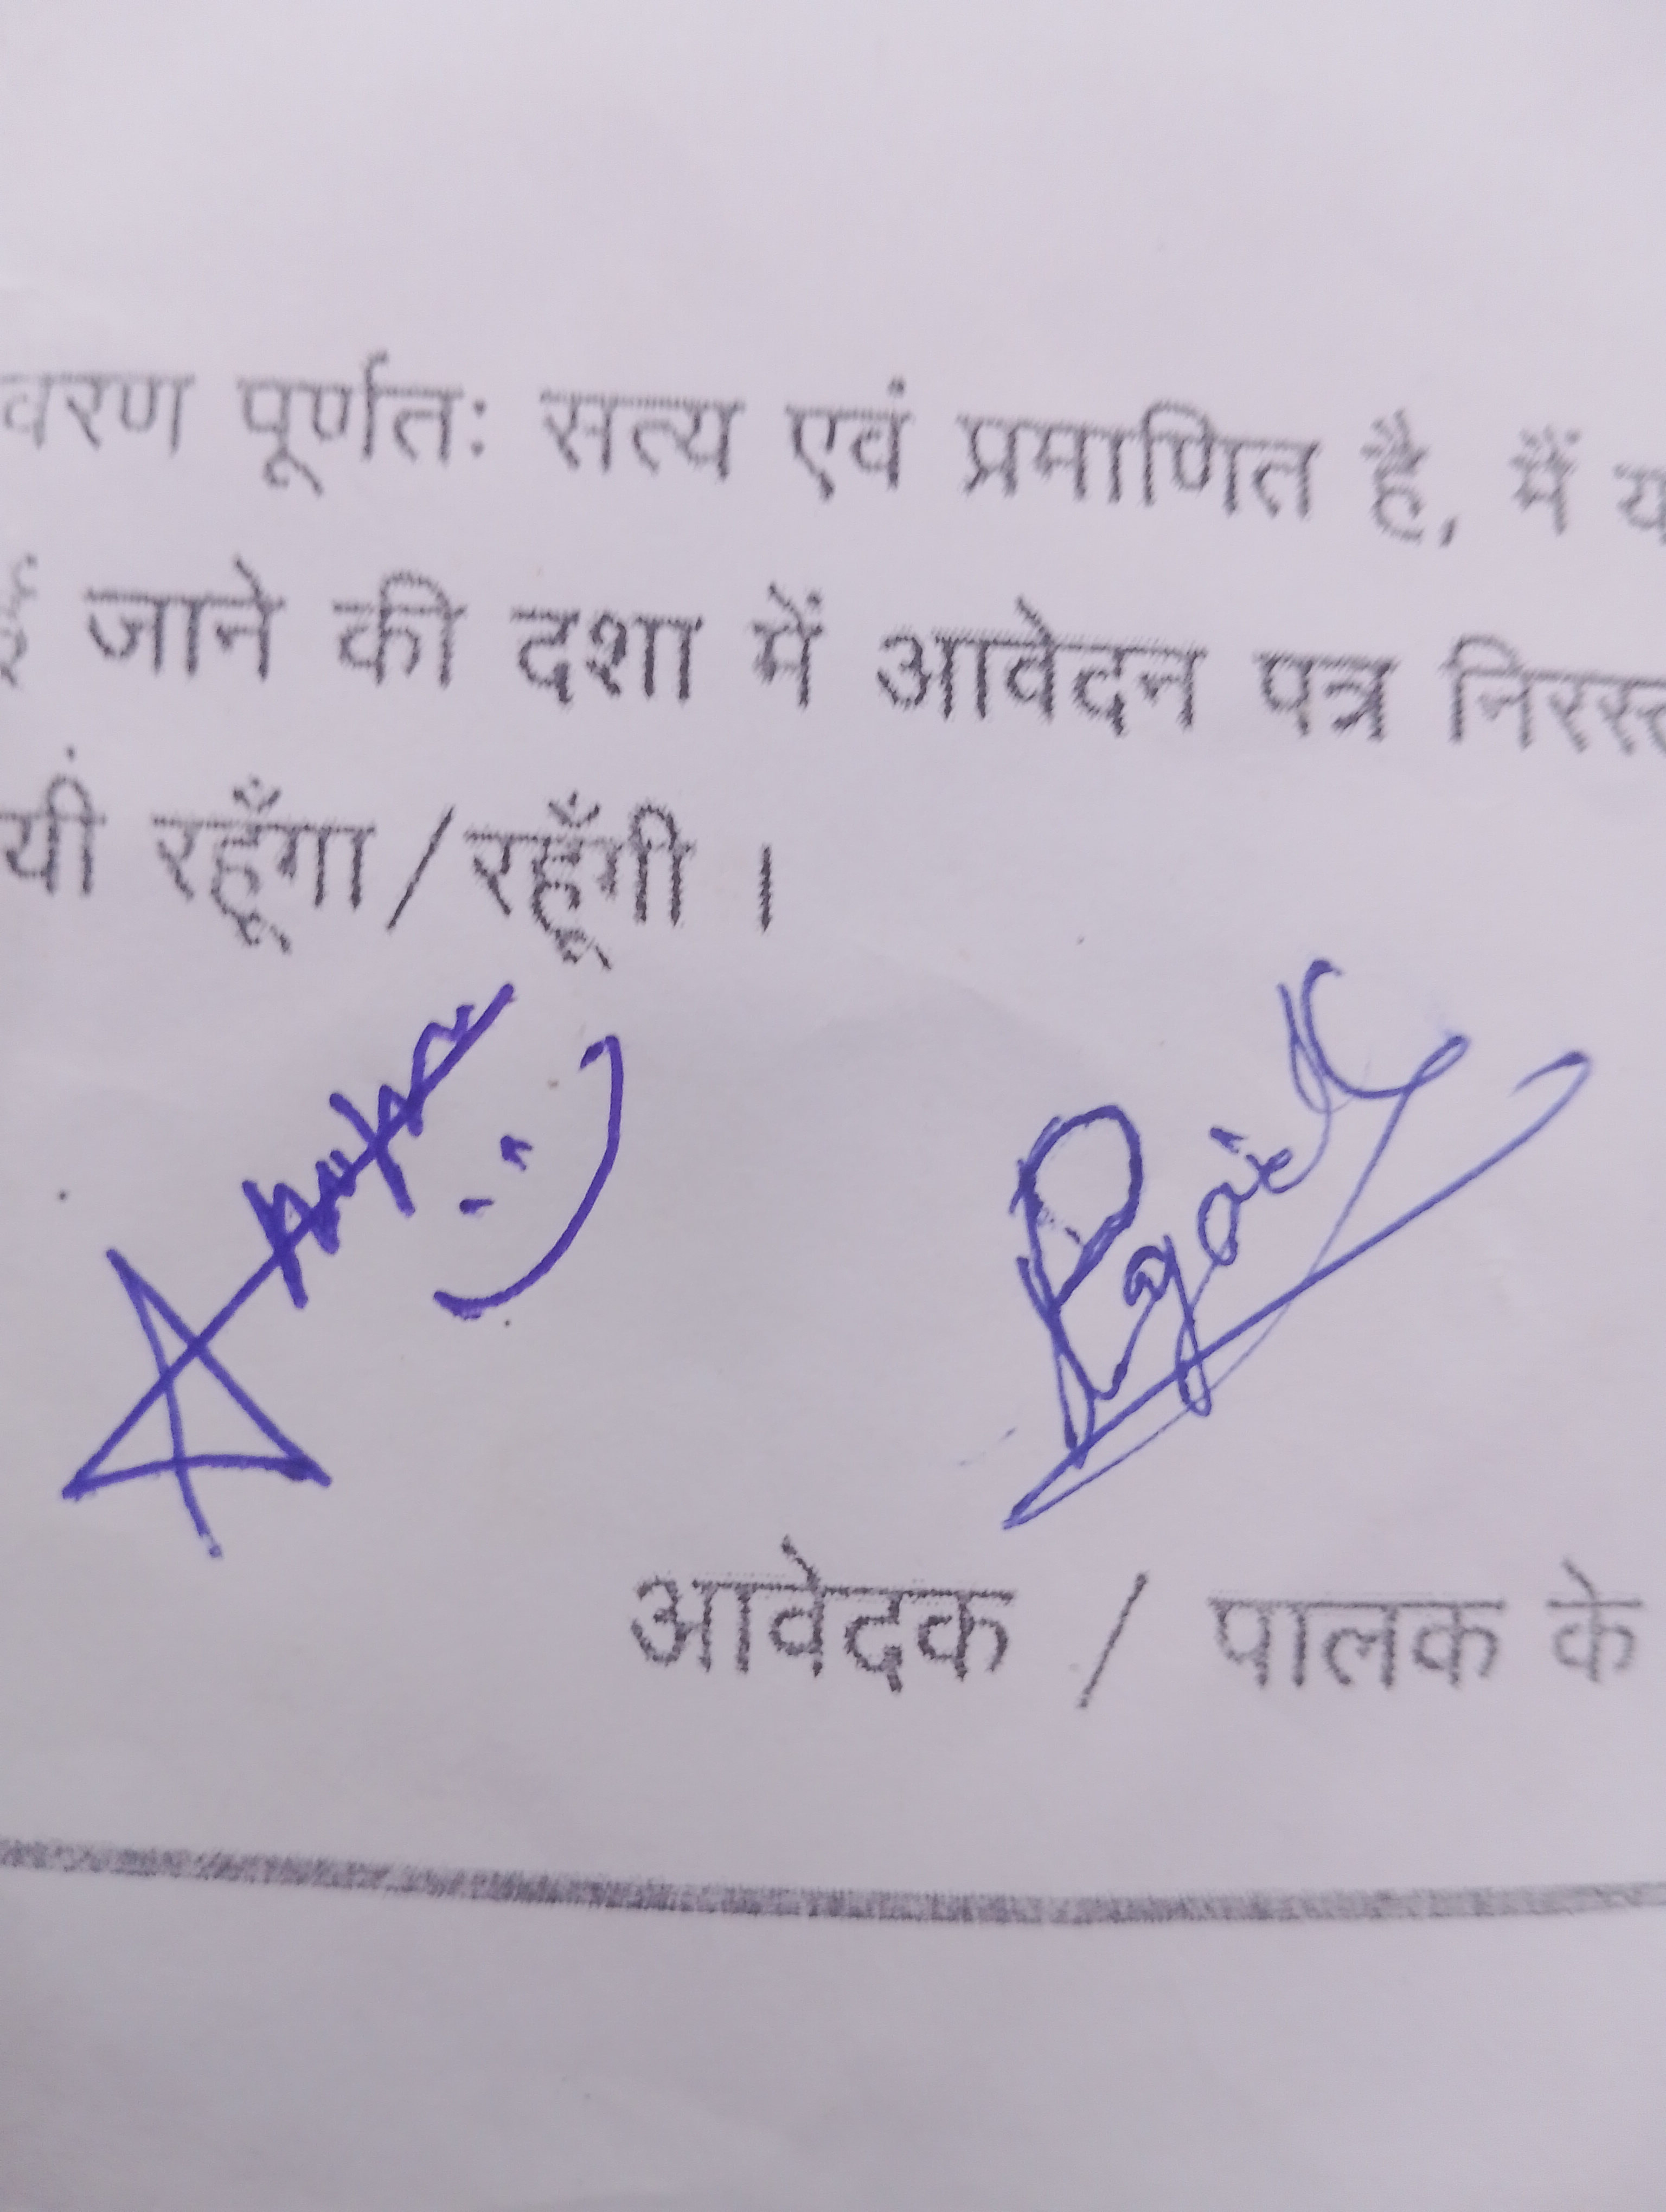 वरण पूर्णतः सत्य एवं प्रमाणित है, मैं य
ई जाने की दशा में आवेदन पत्र निरस्त
यी रहूँगा/रहूँगी ।
आवेदक / पालक के